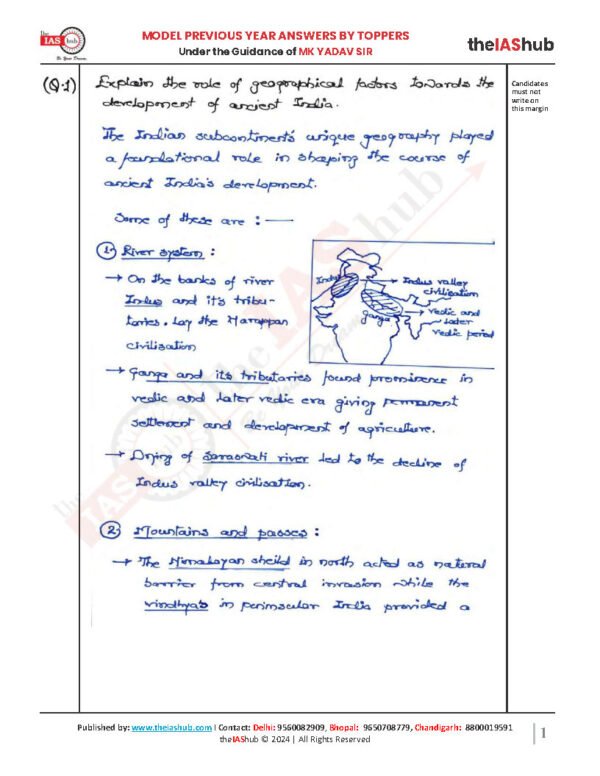 the IAS hub
Be Your Dream
MODEL PREVIOUS YEAR ANSWERS BY TOPPERS
Under the Guidance of MK YADAV SIR
theIAShub
Candidates
must not
write on
this margin
(Q.1) Explain the role of geographical factors towards the
development of ancient India.
The Indian subcontinent's unique geography played
a foundational role in shaping the course of
ancient India's development.
Some of these are : —
1. River system :
→ On the banks of river
Indus and it's tribu-
taries. lay the Harappan
civilisation
Indus
Indus valley
civilisation
Ganga
Vedic and
later
vedic period
→ Ganga and its tributaries found prominence in
vedic and later vedic era giving permanent
settlement and development of agriculture.
→ Drying of saraswati river led to the decline of
Indus valley civilisation.
2 Mountains and passes :
→ The Himalayan sheild in north acted as natural
barrier from central invasion while the
vindhya's in peninsular India provided a
Published by: www.theiashub.com I Contact: Delhi: 9560082909, Bhopal: 9650708779, Chandigarh: 8800019591
theIAShub © 2024 | All Rights Reserved
1